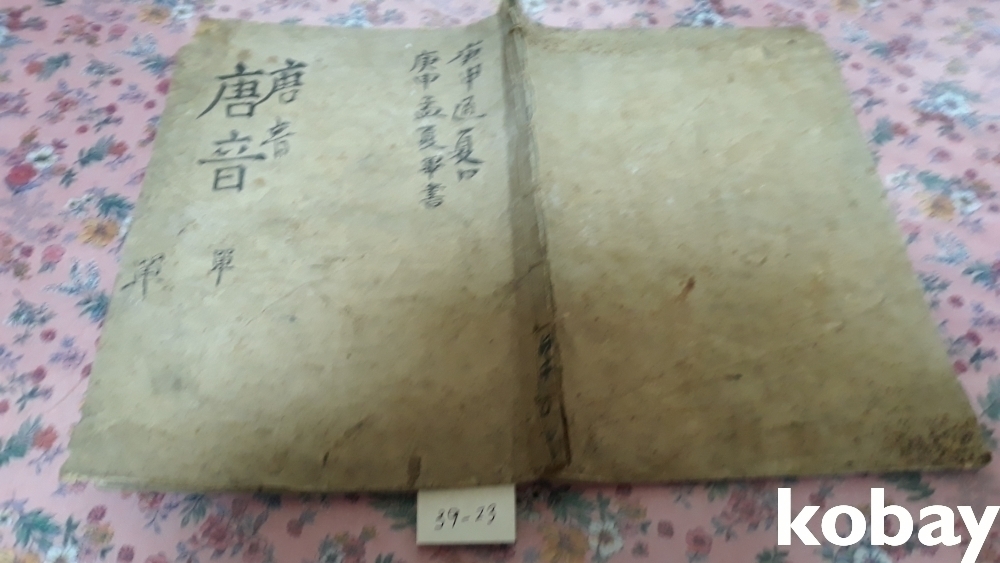 唐音
唐音
單
單
庚甲孟夏畢書
庚甲
夏
39-23
kobay